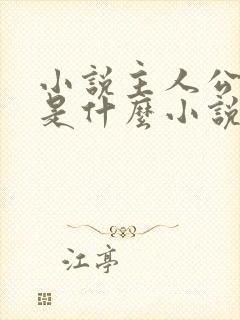 小説主人公
是什麼小說
江亭